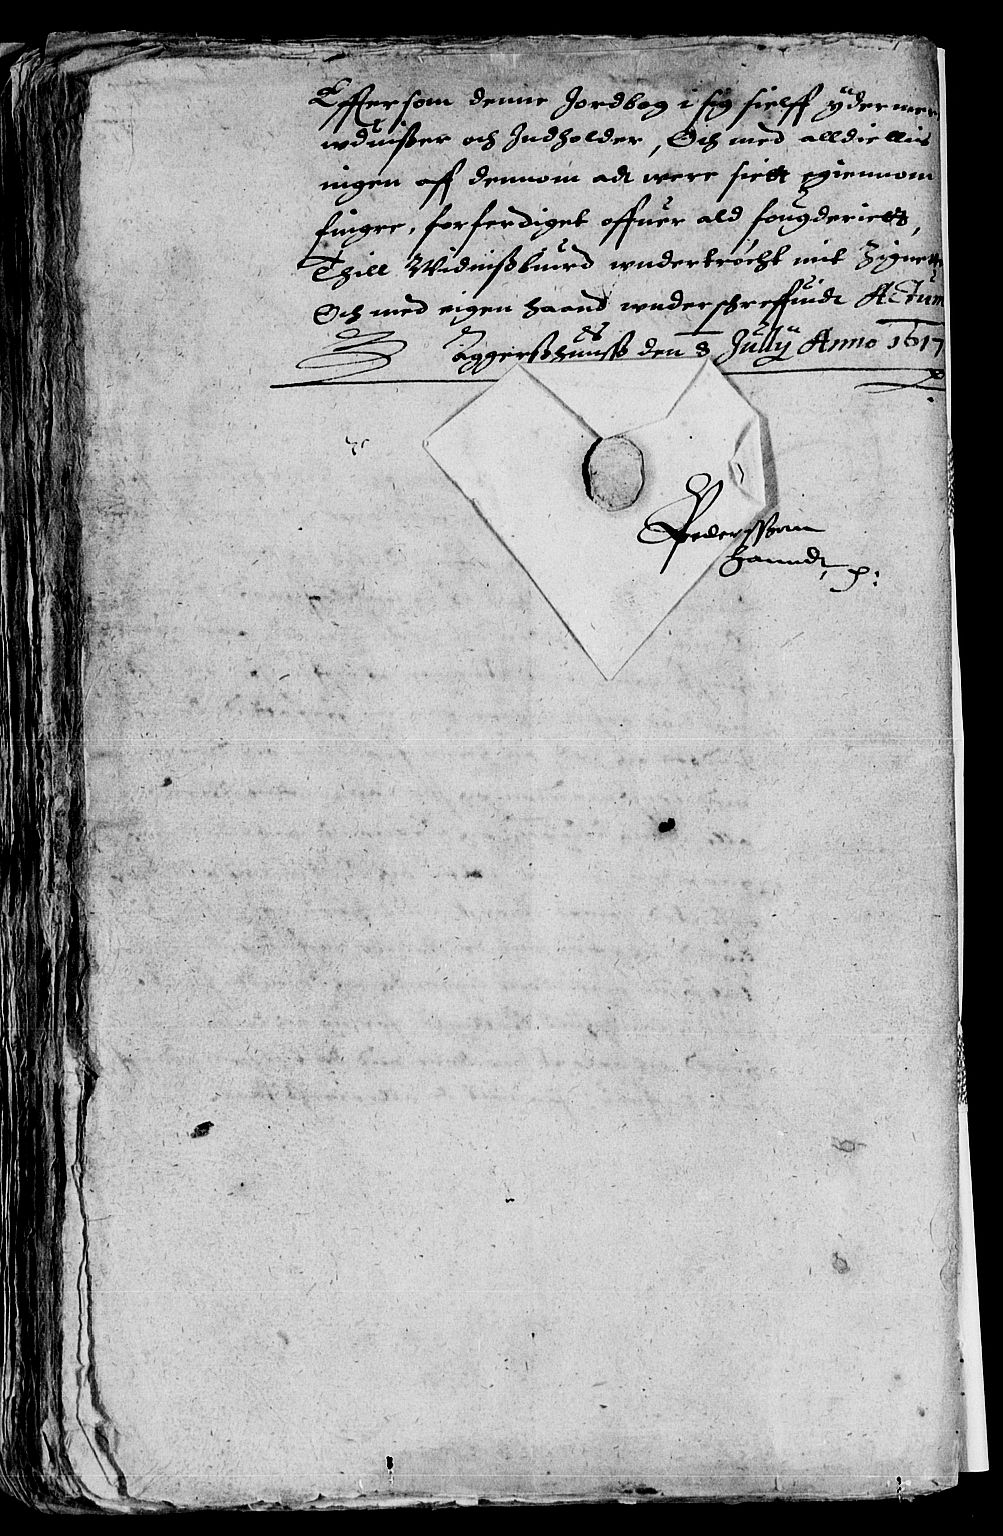 Effter som denne Jordbog i sig sielff ydermer
wduißer och Indholder, Och med alldiellis
ingen aff dennom att were siett igiennom
fingre, forferdiget offuer ald fougderiett,
Thill Widnißbuird wndertröcht mit Zignette
Och med eigen haand wnderschreffuidt Actum
Aggerßhuuß den 8 July Anno 1617
Pederssøan
Hanndt,